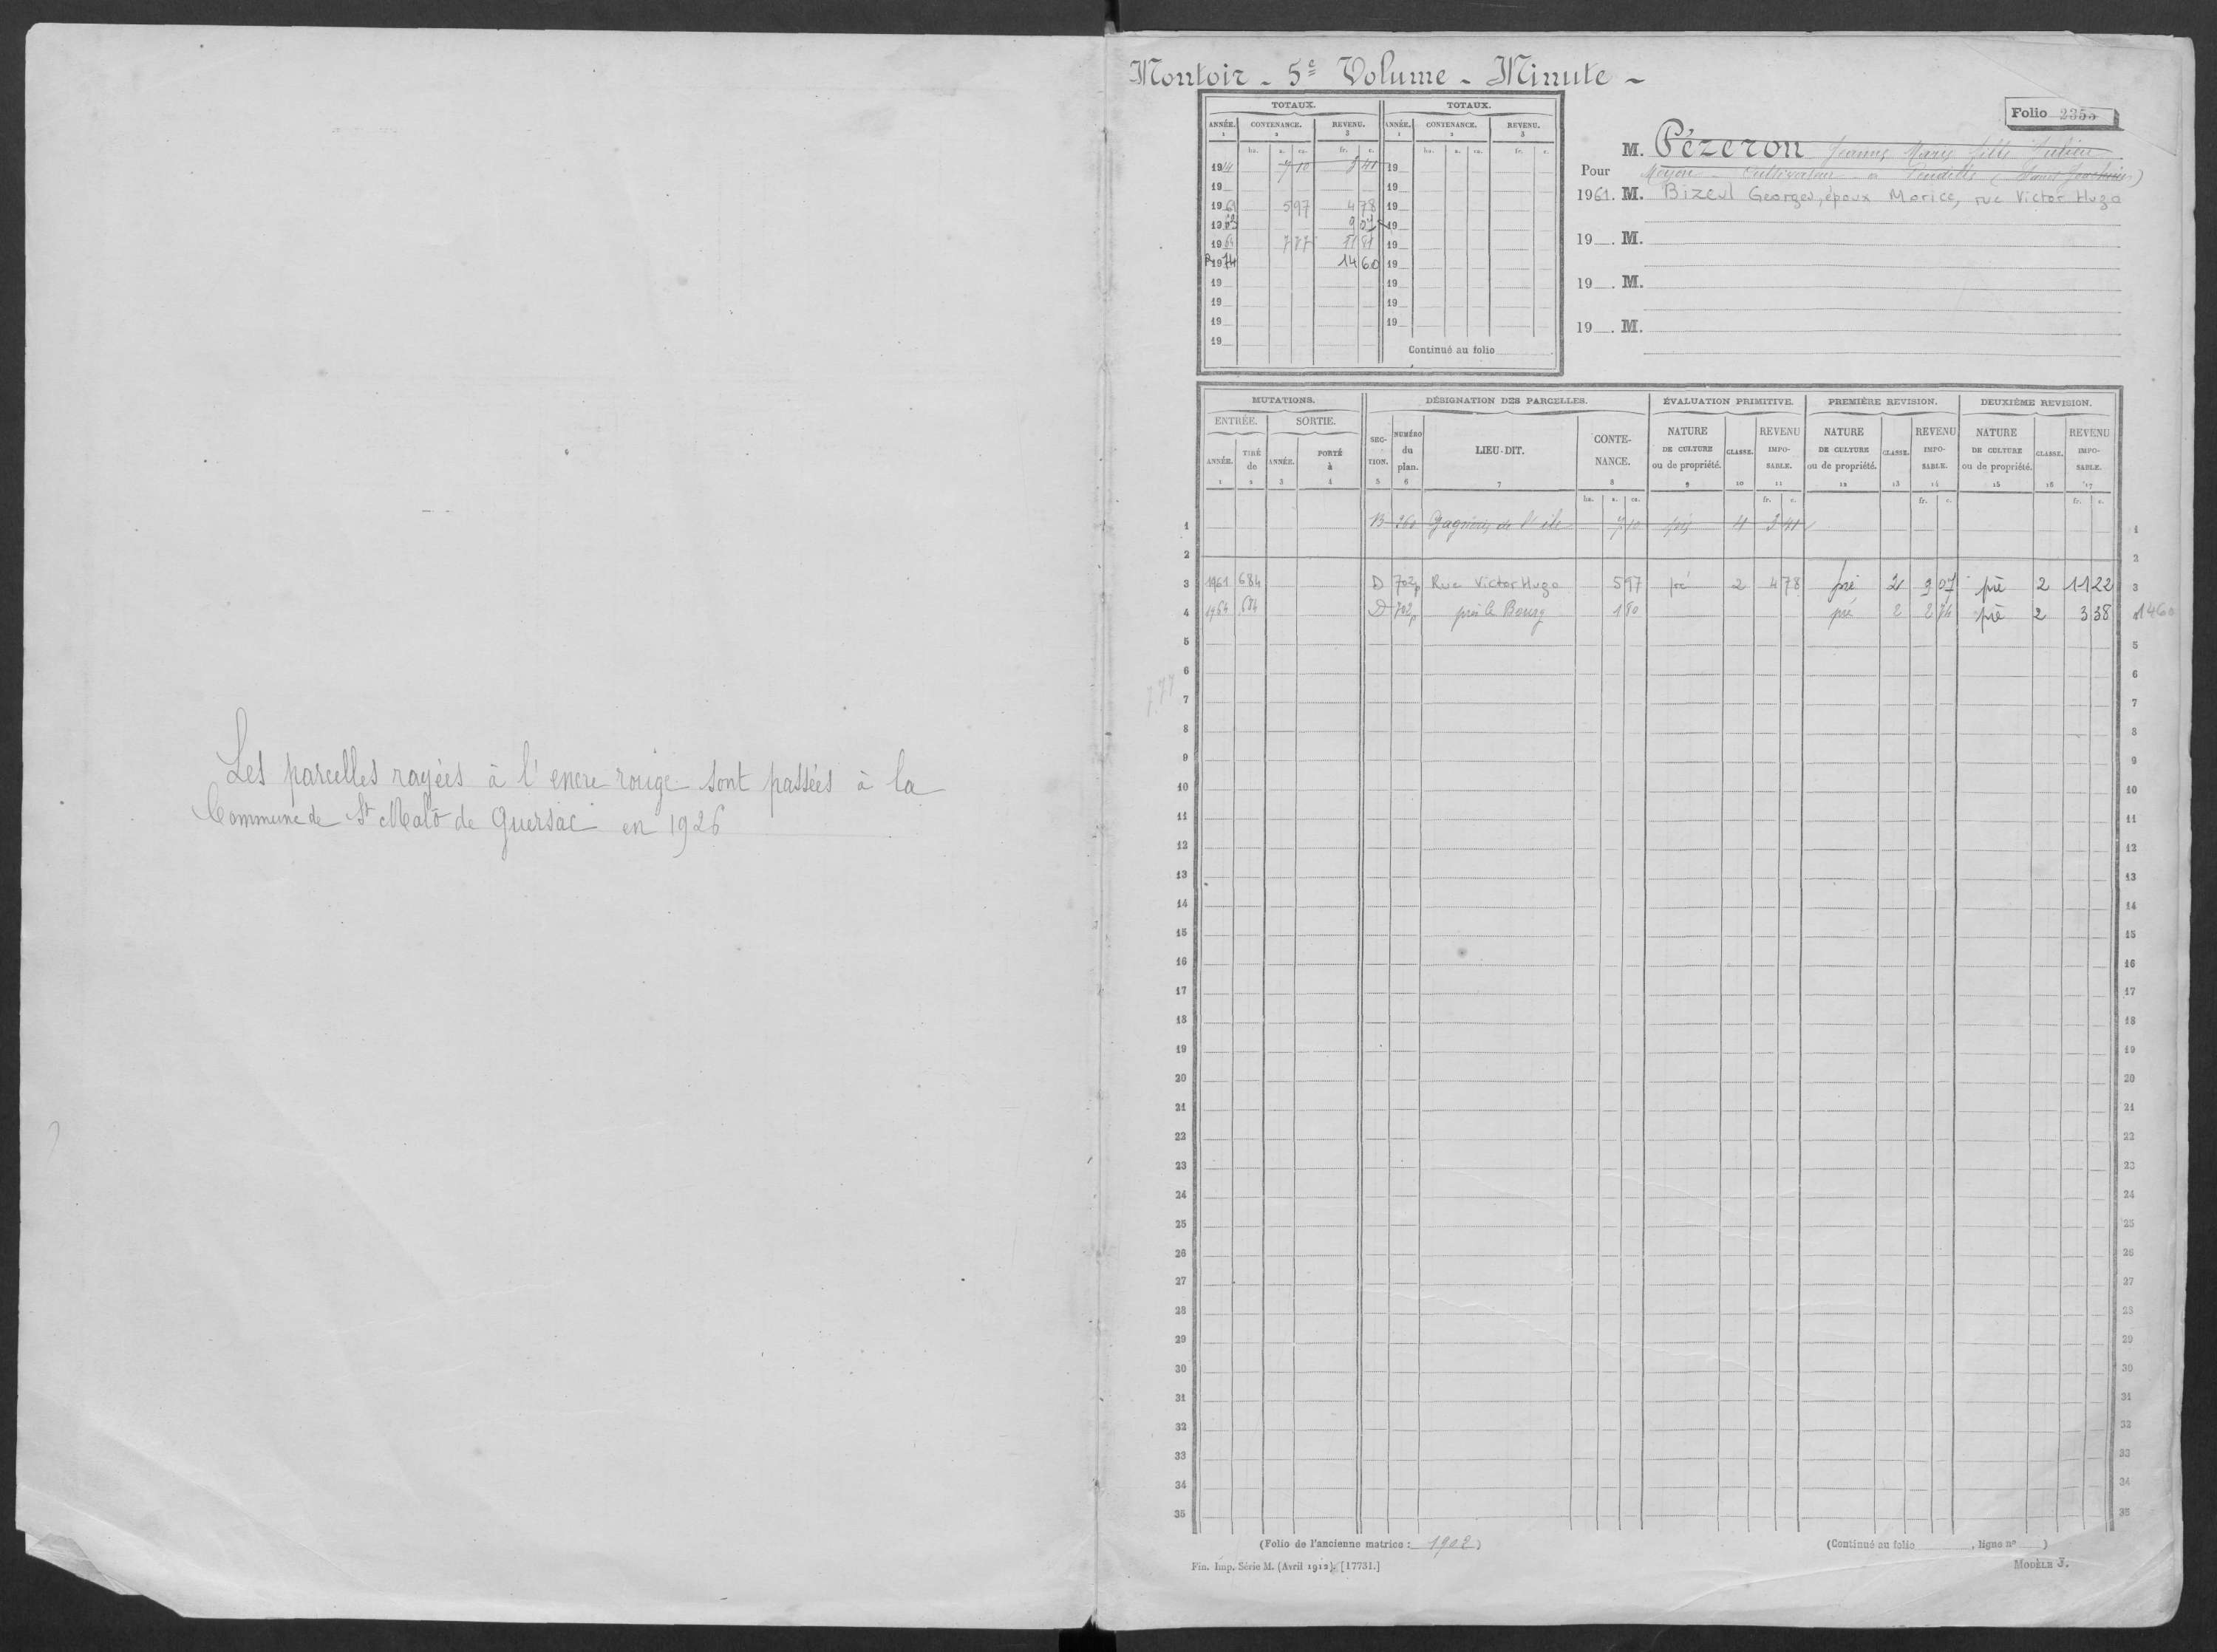 Les parcelles rayées à l'encre rouge sont passées à la
Commune de St Malo de Guersac en 1926
Montoir - 5e Volume - Minute -
TOTAUX. TOTAUX.
ANNÉE. CONTENANCE. REVENU. ANNÉE. CONTENANCE. REVENU.
1 2 3 1 2 3
ha. a. ca. fr. c. ha. a. ca. fr. c.
1914 7 10 3 41 19
19 19
1961 5 97 4 78 19
1963 9 07 19
1964 7 77 11 81 19
R 1974 14 60 19
19 19
19 19
19 19
19
Continué au folio
Folio 2355
M. Pézeron Jeanne Marie fille Julien
Pour Moyon Cultivateur à (Saint Joachim)
1961. M. Bizeul Georges, époux Morice, rue Victor Hugo
19 . M.
19 . M.
19 . M.
MUTATIONS. DÉSIGNATION DES PARCELLES. ÉVALUATION PRIMITIVE. PREMIÈRE REVISION. DEUXIÈME REVISION.
ENTRÉE. SORTIE.
ANNÉE. TIRÉ de ANNÉE. PORTÉ à SECTION. NUMÉRO du plan. LIEU-DIT. CONTENANCE. NATURE DE CULTURE ou de propriété. CLASSE. REVENU IMPOSABLE. NATURE DE CULTURE ou de propriété. CLASSE. REVENU IMPOSABLE. NATURE DE CULTURE ou de propriété. CLASSE. REVENU IMPOSABLE.
1 2 3 4 5 6 7 8 9 10 11 12 13 14 15 16 17
ha. a. ca. fr. c. fr. c. fr. c.
1 B 360 Gagnerie de l'ile 7 10 pré 4 3 41 1
2 2
3 1961 684 D 702p Rue Victor Hugo 5 97 pré 2 4 78 pré 2 9 07 pré 2 11 22 3
4 1964 684 D 702p près le Bourg 1 80 pré 2 2 74 pré 2 3 38 4 1460
5 5
6 6
7.77
7 7
8 8
9 9
10 10
11 11
12 12
13 13
14 14
15 15
16 16
17 17
18 18
19 19
20 20
21 21
22 22
23 23
24 24
25 25
26 26
27 27
28 28
29 29
30 30
31 31
32 32
33 33
34 34
35 35
(Folio de l'ancienne matrice : 1902)
(Continué au folio , ligne n° )
Fin. Imp. Série M. (Avril 1912). [17731.]
MODÈLE 3.